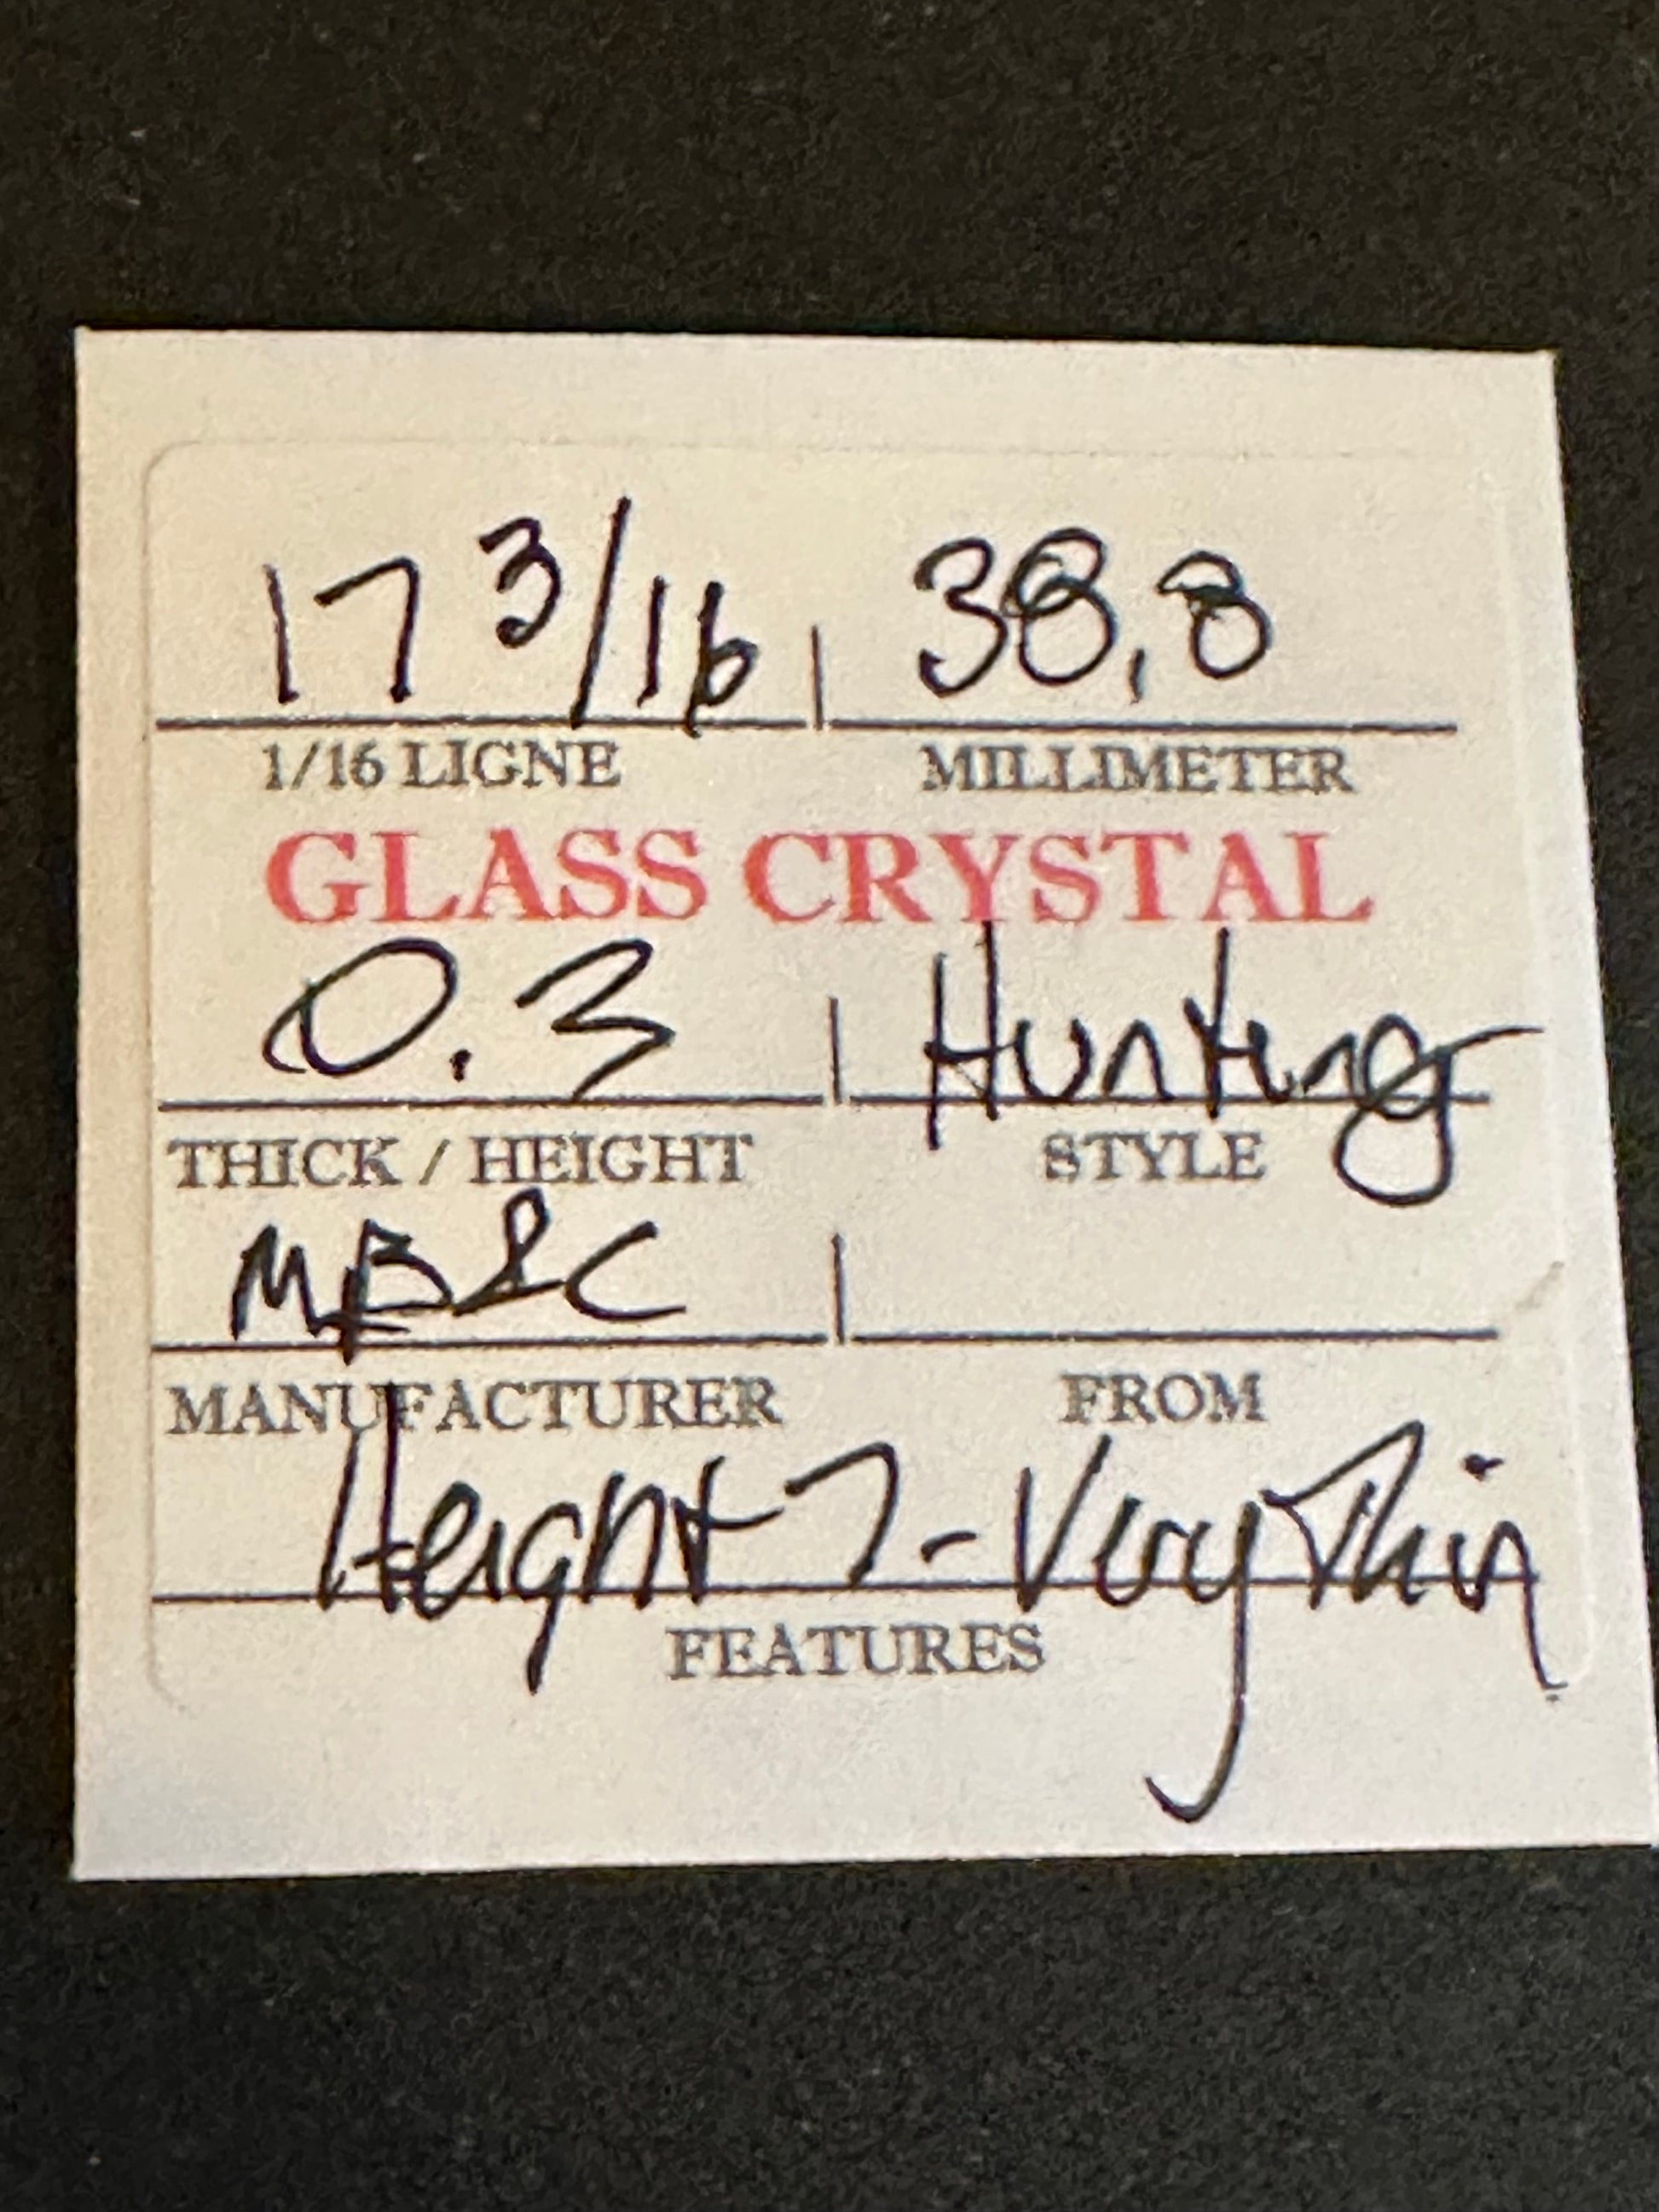 17 3/16 38.8
1/16 LIGNE MILLIMETER
GLASS CRYSTAL
0.3 Hunting
THICK / HEIGHT STYLE
MB&C
MANUFACTURER FROM
Height 7 - Very Thin
FEATURES